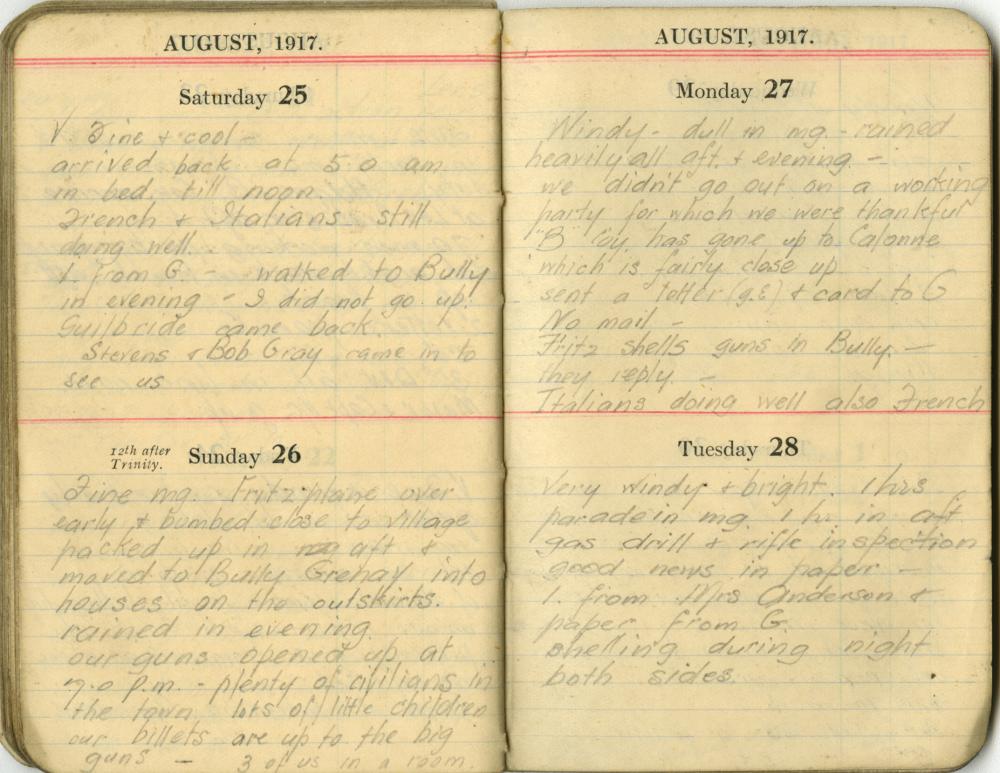 AUGUST, 1917.
Saturday 25
V. Fine & cool -
arrived back at 5.0 am
in bed till noon.
French & Italians still
doing well.
1. from G. - walked to Bully
in evening - I did not go up.
Guilbride came back.
Stevens & Bob Gray came in to
see us
12th after
Trinity.
Sunday 26
Fine mg. Fritz plane over
early & bombed close to village
packed up in aft &
moved to Bully Grenay into
houses on the outskirts.
rained in evening.
our guns opened up at
7.0 p.m. - plenty of civilians in
the town lots of little children
our billets are up to the big
guns - 3 of us in a room.
AUGUST, 1917.
Monday 27
Windy - dull in mg. - rained
heavily all aft. & evening -
we didn't go out on a working
party for which we were thankful
"B" Coy has gone up to Calonne
which is fairly close up
sent a letter (g.E) & card to G
No mail -
Fritz shells guns in Bully. -
they reply. -
Italians doing well also French
Tuesday 28
Very windy & bright. 1 hrs
parade in mg. 1 hr. in aft
gas drill & rifle inspection
good news in paper -
1. from Mrs Anderson &
paper from G.
shelling during night
both sides.